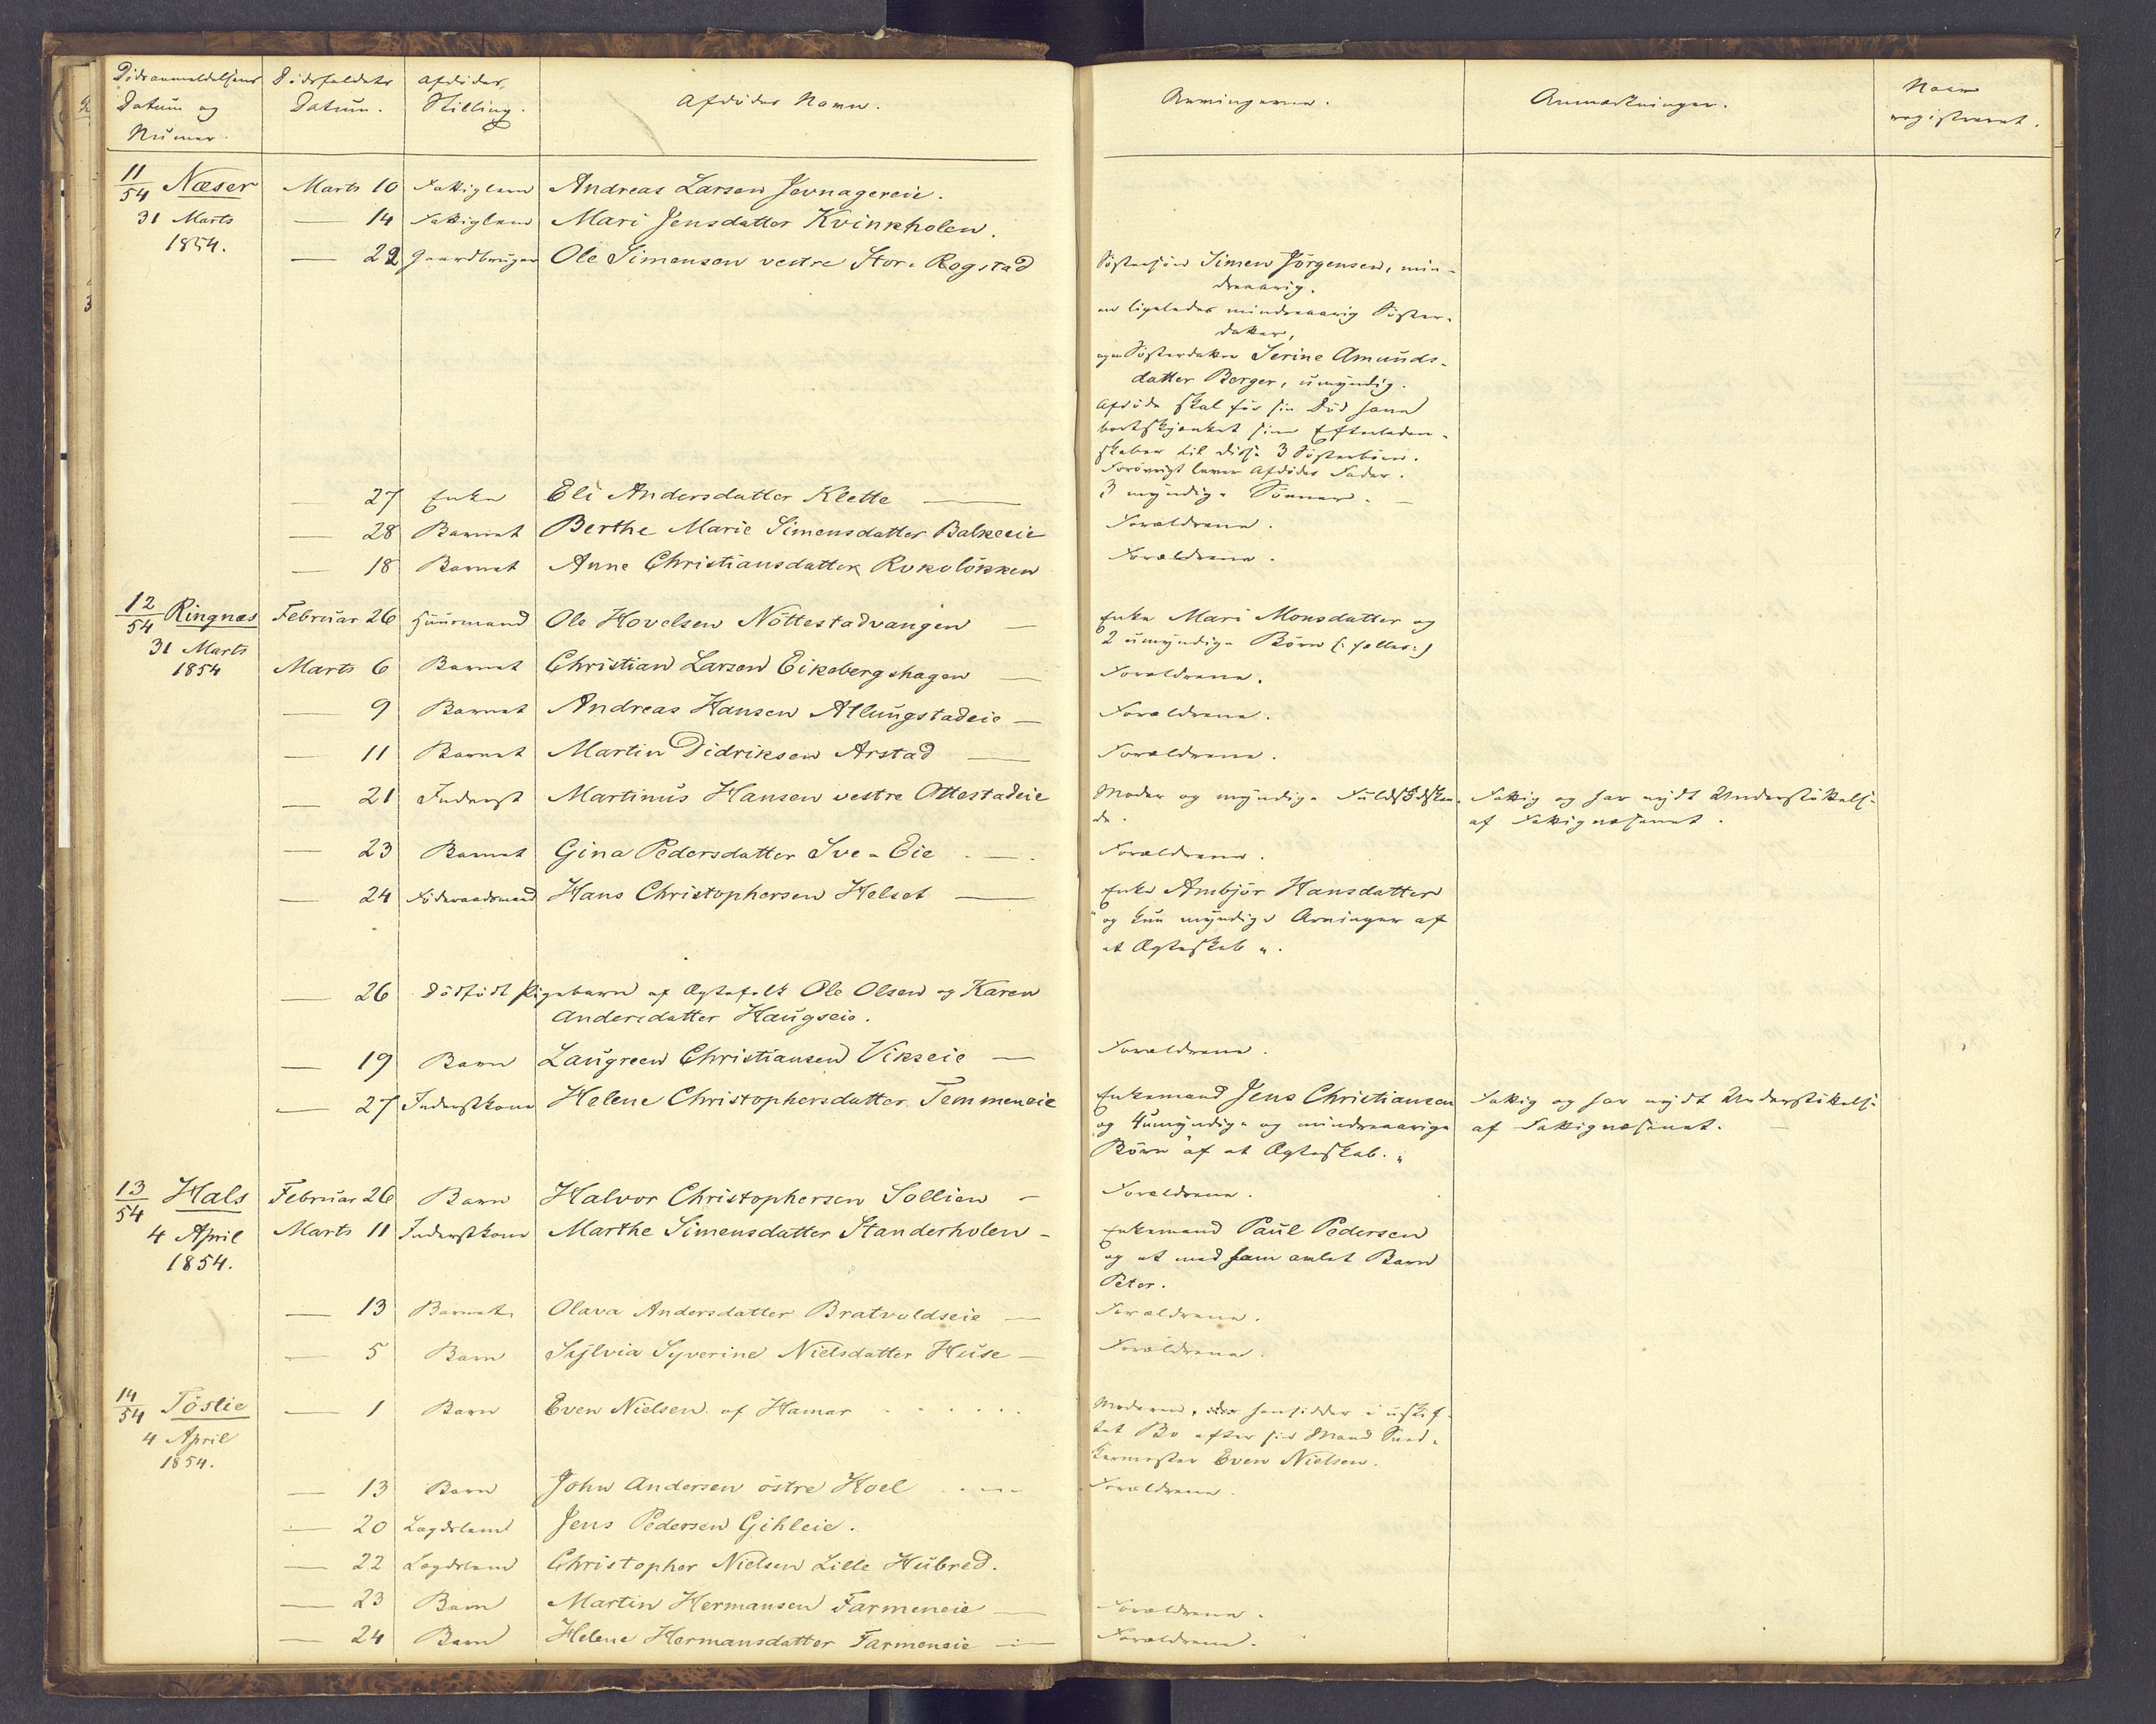 Dödsanmeldelsens Datum og Numer.
Dödsfaldets Datum.
Afdödes Stilling.
Afdödes Navn.
Arvingerne.
Anmærkninger.
Naar registreret.
11/54 Næser Marts 10 Fattiglem Andreas Larsen Jevnagereie.
31 Marts — 14 Fattiglem Mari Jensdatter Kvinkholen.
1854. — 22 Gaardbruger Ole Simensen vestre Stor-Rogstad Söstersön Simen Jörgensen, min-
dreaarig.
en ligeledes mindreaarig Söster-
datter,
egen Sösterdatter Serine Amunds-
datter Berger, umyndig.
Afdöde skal för sin Död have
bortskjænket sine Efterladen-
skaber til disse 3 Sösterbörn.
Forövrigt lever Afdödes Fader.
— 27 Enke Eli Andersdatter Klette — 3 myndige Sönner. —
— 28 Barnet Berthe Marie Simensdatter Balkeeie Forældrene.
— 18 Barnet Anne Christiansdatter Rokolökken Forældrene.
12/54 Ringnæs Februar 26 Huusmand Ole Hovelsen Nöttestadvangen — Enke Mari Monsdatter og
31 Marts 2 umyndige Börn (: fælles :)
1854 Marts 6 Barnet Christian Larsen Eikebergshagen — Forældrene.
— 9 Barnet Andreas Hansen Atlungstadeie — Forældrene.
— 11 Barnet Martin Didriksen Arstad — Forældrene.
— 21 Inderst Martinus Hansen vestre Ottestadeie Moder og myndige Fuldsödsken- Fattig og har nydt Understöttelse
de. af Fattigvæsenet.
— 23 Barnet Gina Pedersdatter Sve-Eie — Forældrene.
— 24 Föderaadsmand Hans Christophersen Helset — Enke Ambjör Hansdatter
og kun myndige Arvinger af
et Ægteskab.
— 26 Dödfödt Pigebarn af Ægtefolk Ole Olsen og Karen
Andersdatter Haugseie.
— 19 Barn Laugreen Christiansen Vikseie — Forældrene.
— 27 Inderstkone Helene Christophersdatter Temmeneie Enkemand Jens Christiansen Fattig og har nydt Understöttelse
og 4 umyndige og mindreaarige af Fattigvæsenet.
Börn af et Ægteskab.
13/54 Hals Februar 26 Barn Halvor Christophersen Sollien — Forældrene.
4 April Marts 11 Inderstkone Marthe Simensdatter Standerholen — Enkemand Paul Pedersen
1854. og et med ham avlet Barn
Peter.
— 13 Barnet Olava Andersdatter Bratvoldseie — Forældrene.
— 5 Barn Sylvia Syverine Nielsdatter Huse — Forældrene.
14/54 Töslie — 1 Barn Even Nielsen af Hamar Moderen, der hensidder i uskif-
4 April tet Bo efter sin Mand Sned-
1854. kermester Even Nielsen.
— 13 Barn John Andersen östre Hoel Forældrene.
— 20 Lægdslem Jens Pedersen Gihleie.
— 22 Lægdslem Christopher Nielsen Lille Hubred.
— 23 Barn Martin Hermansen Farmeneie — Forældrene.
— 24 Barn Helene Hermansdatter Farmeneie — Forældrene.